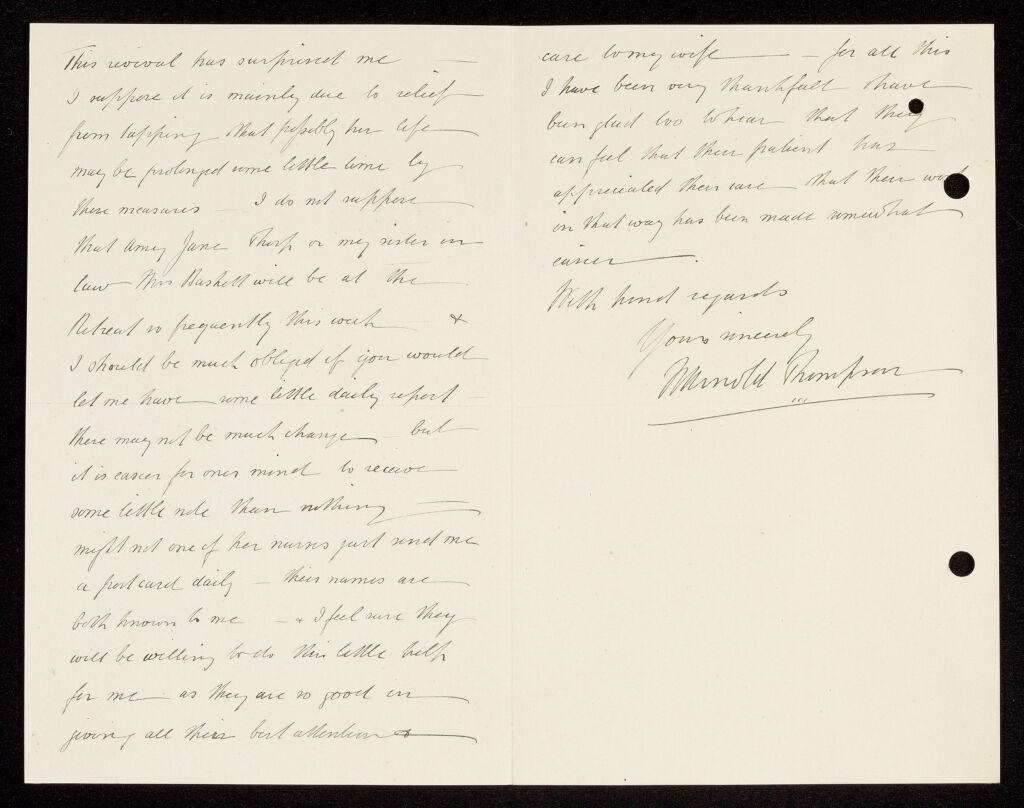 This revival has surprised me —
I suppose it is mainly due to relief
from tapping & that possibly her life
may be prolonged some little time by
these measures — I do not suppose
that Amy Jane Thorp or my sister in
law Mrs Baskett will be at the
Retreat so frequently this week — &
I should be much obliged if you would
let me have some little daily report —
there may not be much change — but
it is easier for ones mind to receive
some little note than nothing —
might not one of her nurses just send me
a postcard daily — their names are
both known to me — & I feel sure they
will be willing to do this little help
for me as they are so good in
giving all their best attention &
care to my wife — for all this
I have been very thankful & have
been glad too to hear that they
can feel that their patient has
appreciated their care & that their work
in that way has been made somewhat
easier —.
With kind regards
Yours sincerely
Thompson